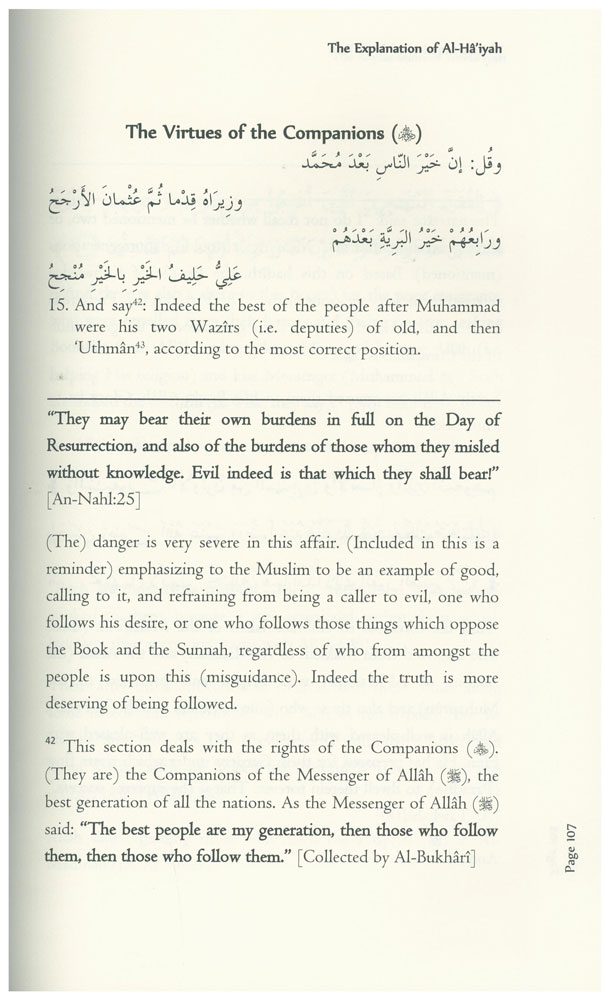 The Explanation of Al-Hâ'iyah
The Virtues of the Companions (ﷺ)
وقُل: إنَّ خَيْرَ النّاسِ بَعْدَ مُحَمَّد
وزِيرَاهُ قِدْما ثُمَّ عُثْمانَ الأَرْجَحُ
ورَابِعُهُمْ خَيْرُ البَرِيَّةِ بَعْدَهُمْ
عَلِيٌّ حَلِيفُ الخَيْرِ بِالخَيْرِ مُنْجِحُ
15. And say⁴²: Indeed the best of the people after Muhammad
were his two Wazîrs (i.e. deputies) of old, and then
‘Uthmân⁴³, according to the most correct position.
“They may bear their own burdens in full on the Day of
Resurrection, and also of the burdens of those whom they misled
without knowledge. Evil indeed is that which they shall bear!”
[An-Nahl:25]
(The) danger is very severe in this affair. (Included in this is a
reminder) emphasizing to the Muslim to be an example of good,
calling to it, and refraining from being a caller to evil, one who
follows his desire, or one who follows those things which oppose
the Book and the Sunnah, regardless of who from amongst the
people is upon this (misguidance). Indeed the truth is more
deserving of being followed.
⁴² This section deals with the rights of the Companions ().
(They are) the Companions of the Messenger of Allâh (ﷺ), the
best generation of all the nations. As the Messenger of Allâh (ﷺ)
said: “The best people are my generation, then those who follow
them, then those who follow them.” [Collected by Al-Bukhârî]
Page 107